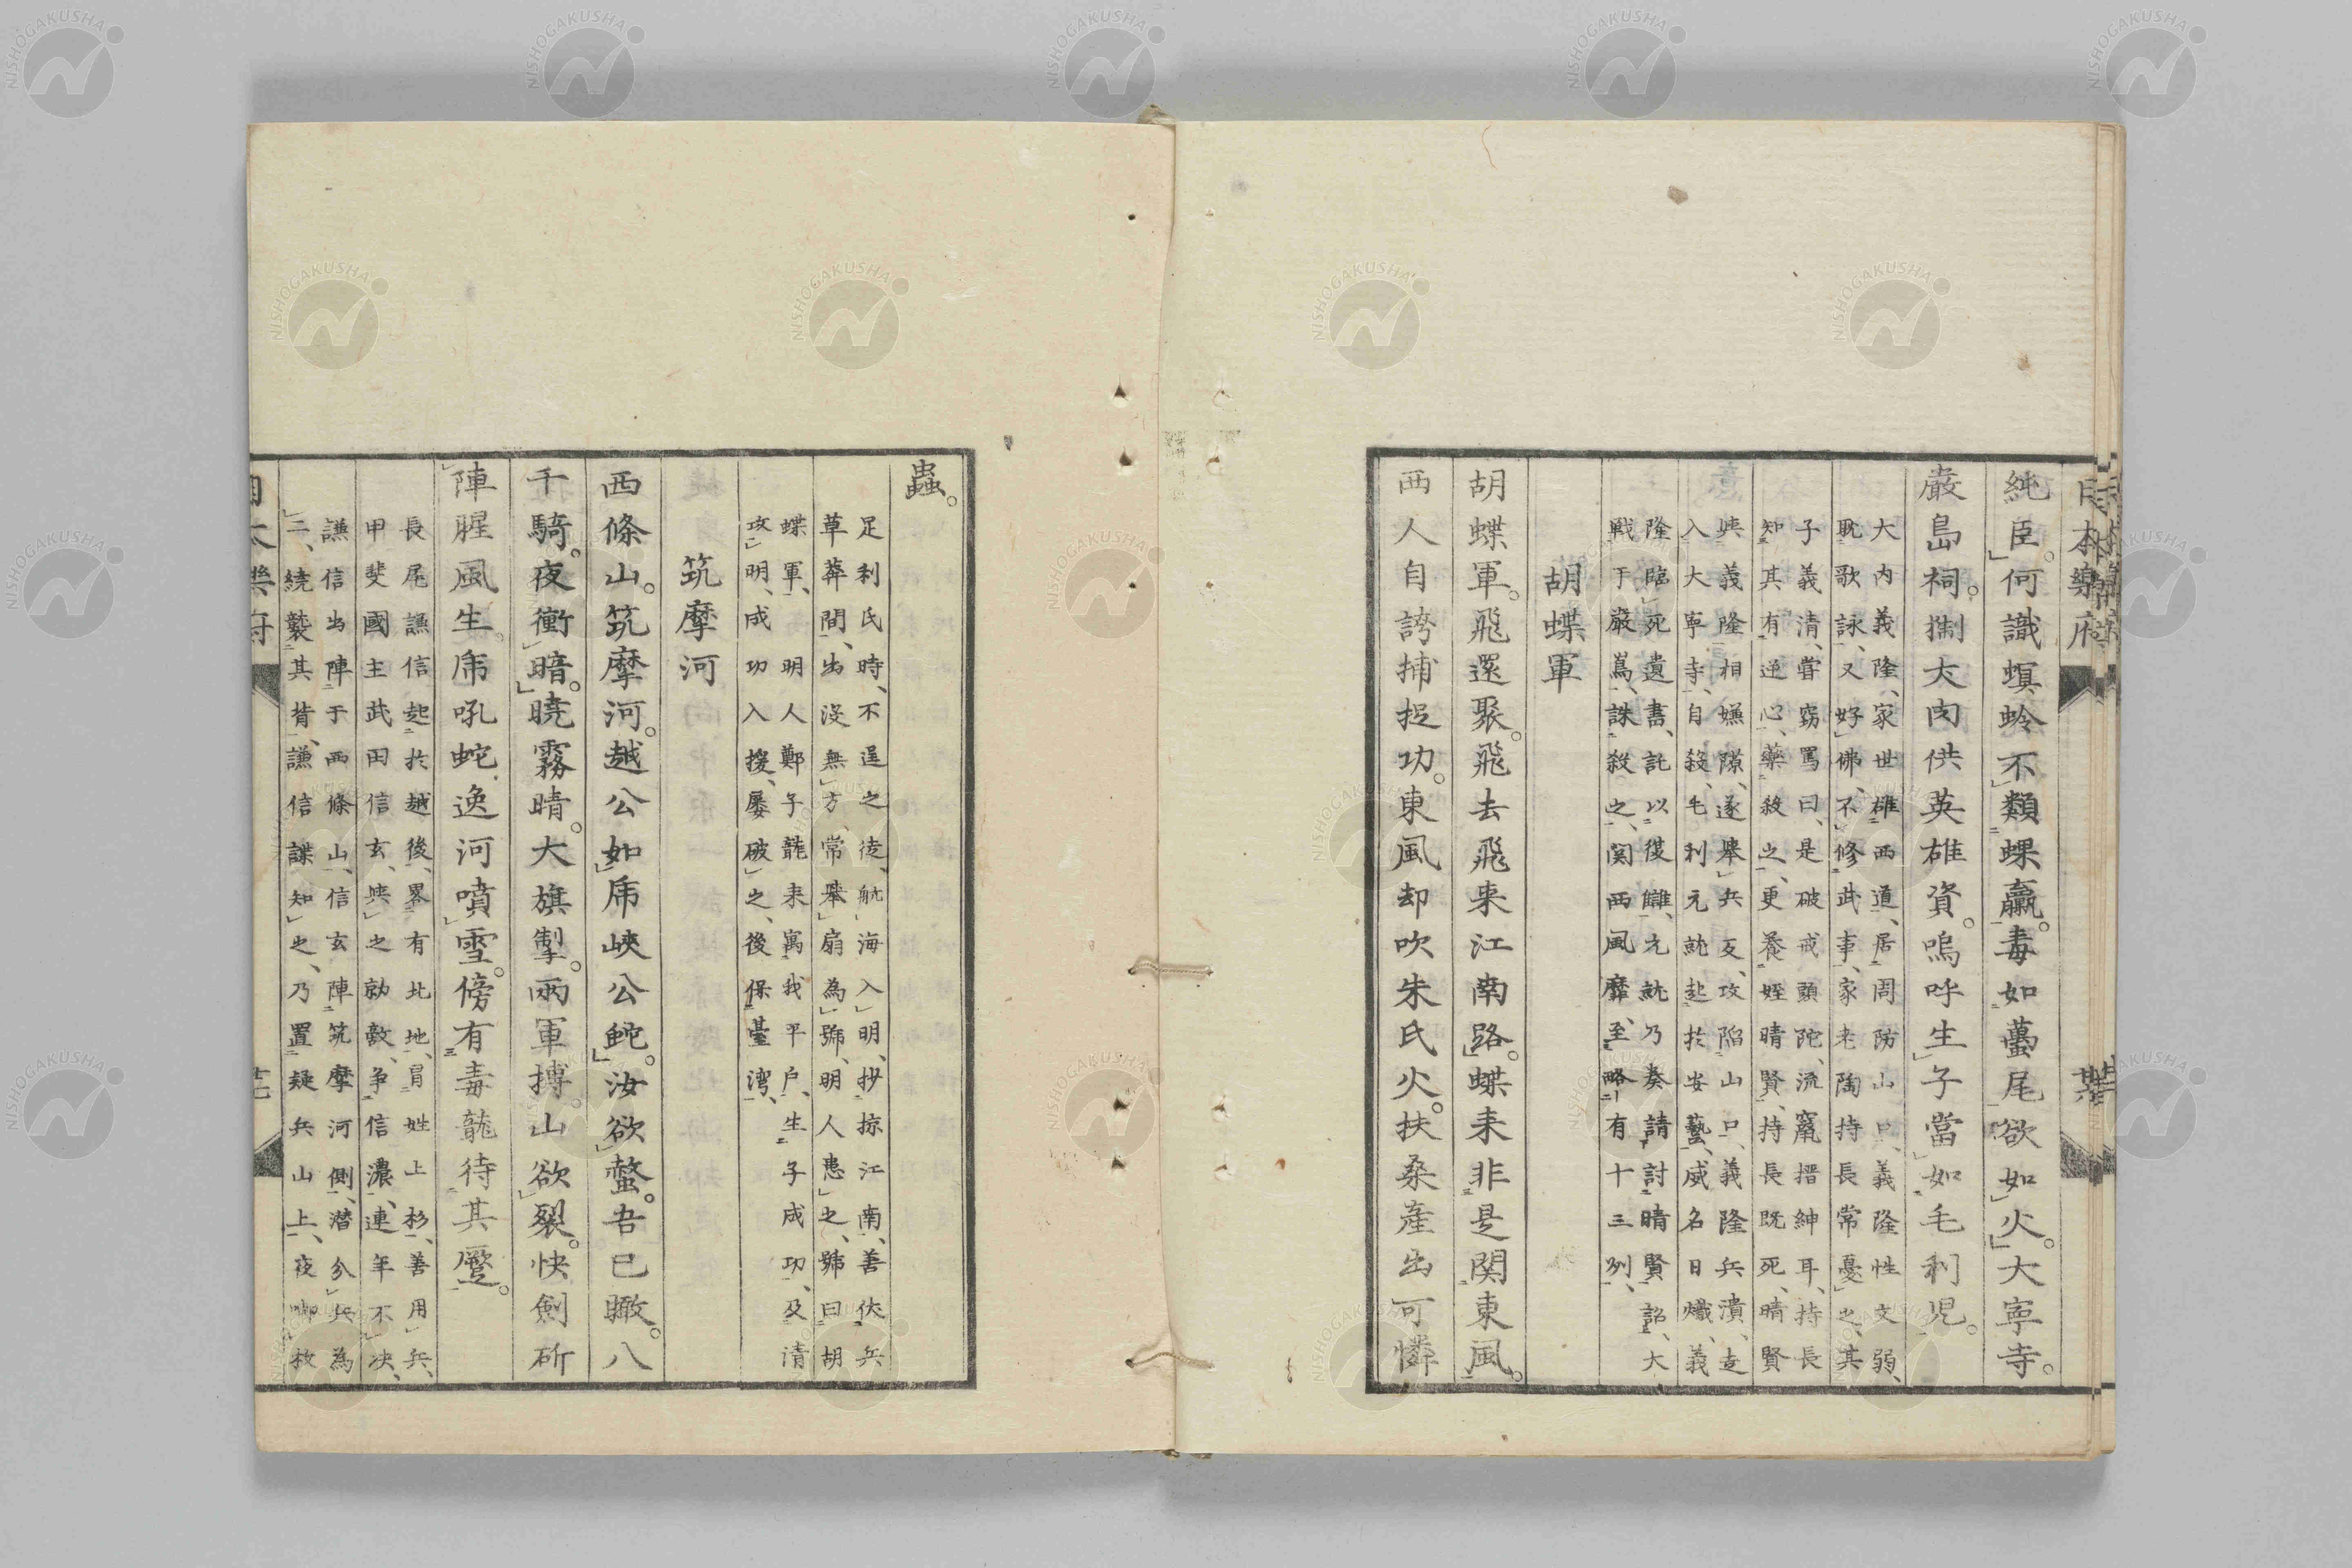 日本樂府
純臣。何識螟蛉不類蜾蠃。毒如蠆尾欲如火。大寧寺。
嚴島祠。掬大內供英雄資。嗚呼生子當如毛利児。
大内義隆、家世雄西道、居周防山口、義隆性文弱、
耽歌詠、又好佛、不修武事、家老陶持長常憂之、其
子義清、嘗窃罵曰、是破戒頭陀、流竄搢紳耳、持長
知其有逆心、藥殺之、更養姪晴賢、持長既死、晴賢
与義隆相嫌隙、遂擧兵反、攻陷山口、義隆兵潰、走
入大寧寺、自殺、毛利元就起於安藝、威名日熾、義
隆臨死遺書、託以復讎、元就乃奏請討晴賢、詔、大
戦于嚴嶌、誅殺之、関西風靡、至略有十三州、
胡蝶軍
胡蝶軍。飛還聚。飛去飛来江南路。蝶来非是関東風。
西人自誇捕捉功。東風却吹朱氏火。扶桒產出可憐
蟲。
足利氏時、不逞之徒、航海入明、抄掠江南、善伏兵
草莽間、出沒無方、常擧扇為號、明人患之、號曰胡
蝶軍、明人鄭子龍来寓我平戶、生子成功、及清
攻明、成功入援、屡破之、後保䑓湾、
筑摩河
西條山。筑摩河。越公如乕峽公蛇。汝欲螫。吾已瞰。八
千騎。夜衝暗。曉霧晴。大旗掣。兩軍搏山欲裂。快劍斫
陣腥風生。乕吼蛇逸河噴雪。傍有毒龍待其蹷。
長尾謙信起於越後、畧有北地、冒姓上杉、善用兵、
甲斐國主武田信玄、与之勍敵、争信濃、連年不决、
謙信出陣于西條山、信玄陣筑摩河側、潜分兵為
二、繞襲其背、謙信諜知之、乃置疑兵山上、夜啣枚
日本樂府
NISHOGAKUSHA